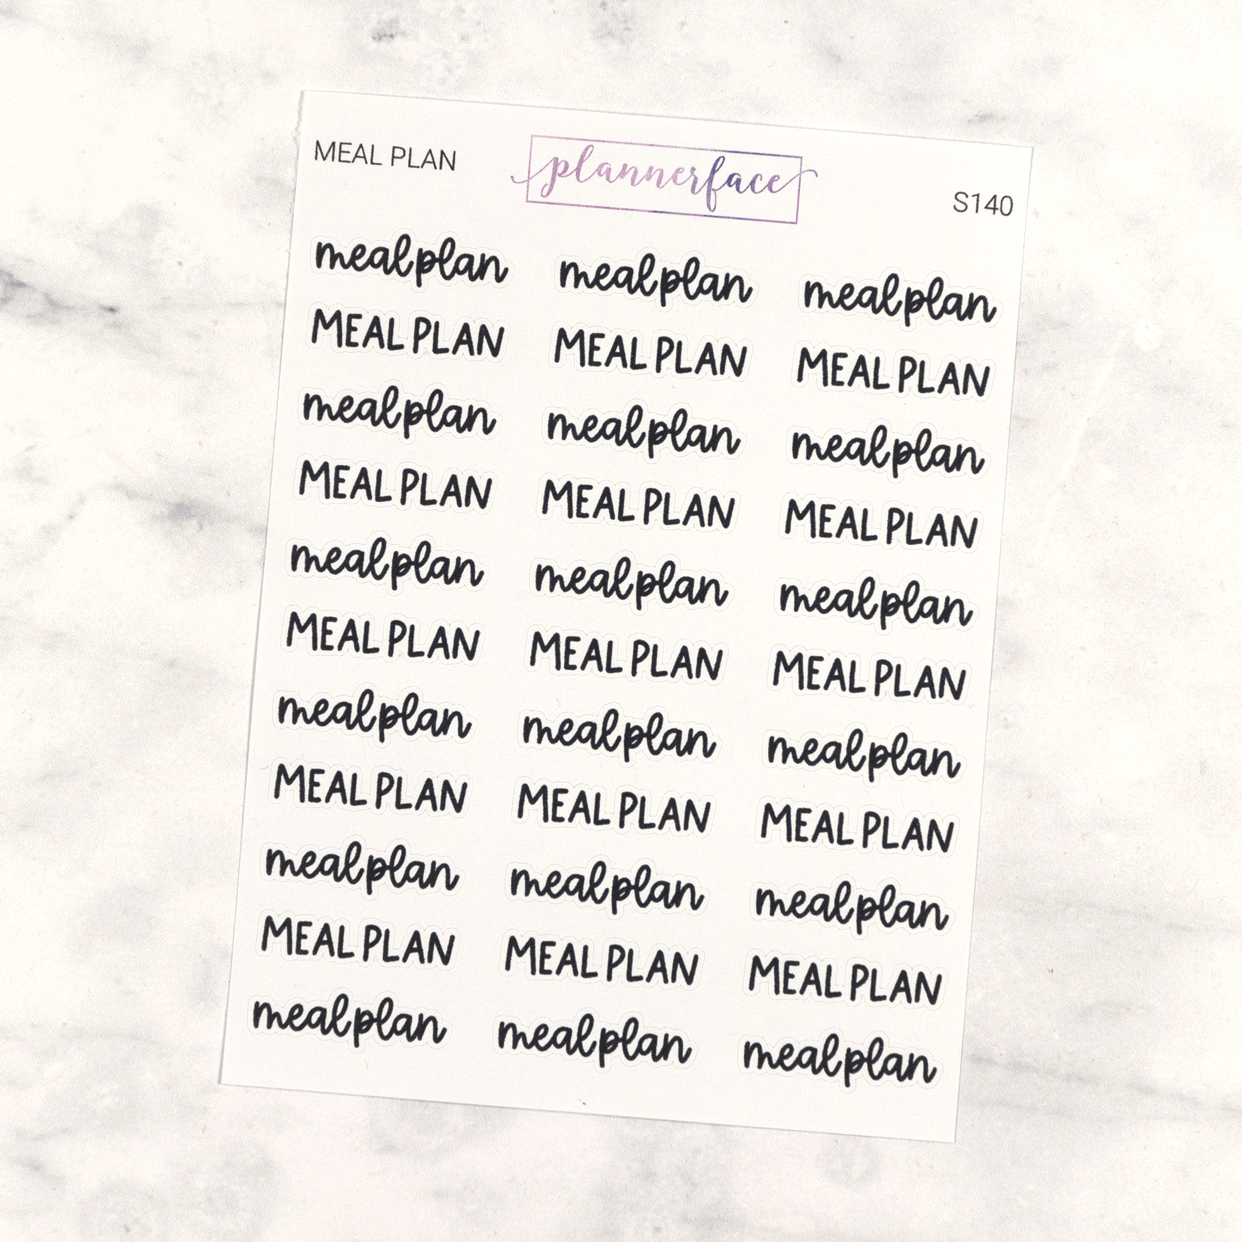 MEAL PLAN plannerface S140
meal plan meal plan meal plan
MEAL PLAN MEAL PLAN MEAL PLAN
meal plan meal plan meal plan
MEAL PLAN MEAL PLAN MEAL PLAN
meal plan meal plan meal plan
MEAL PLAN MEAL PLAN MEAL PLAN
meal plan meal plan meal plan
MEAL PLAN MEAL PLAN MEAL PLAN
meal plan meal plan meal plan
MEAL PLAN MEAL PLAN MEAL PLAN
meal plan meal plan meal plan